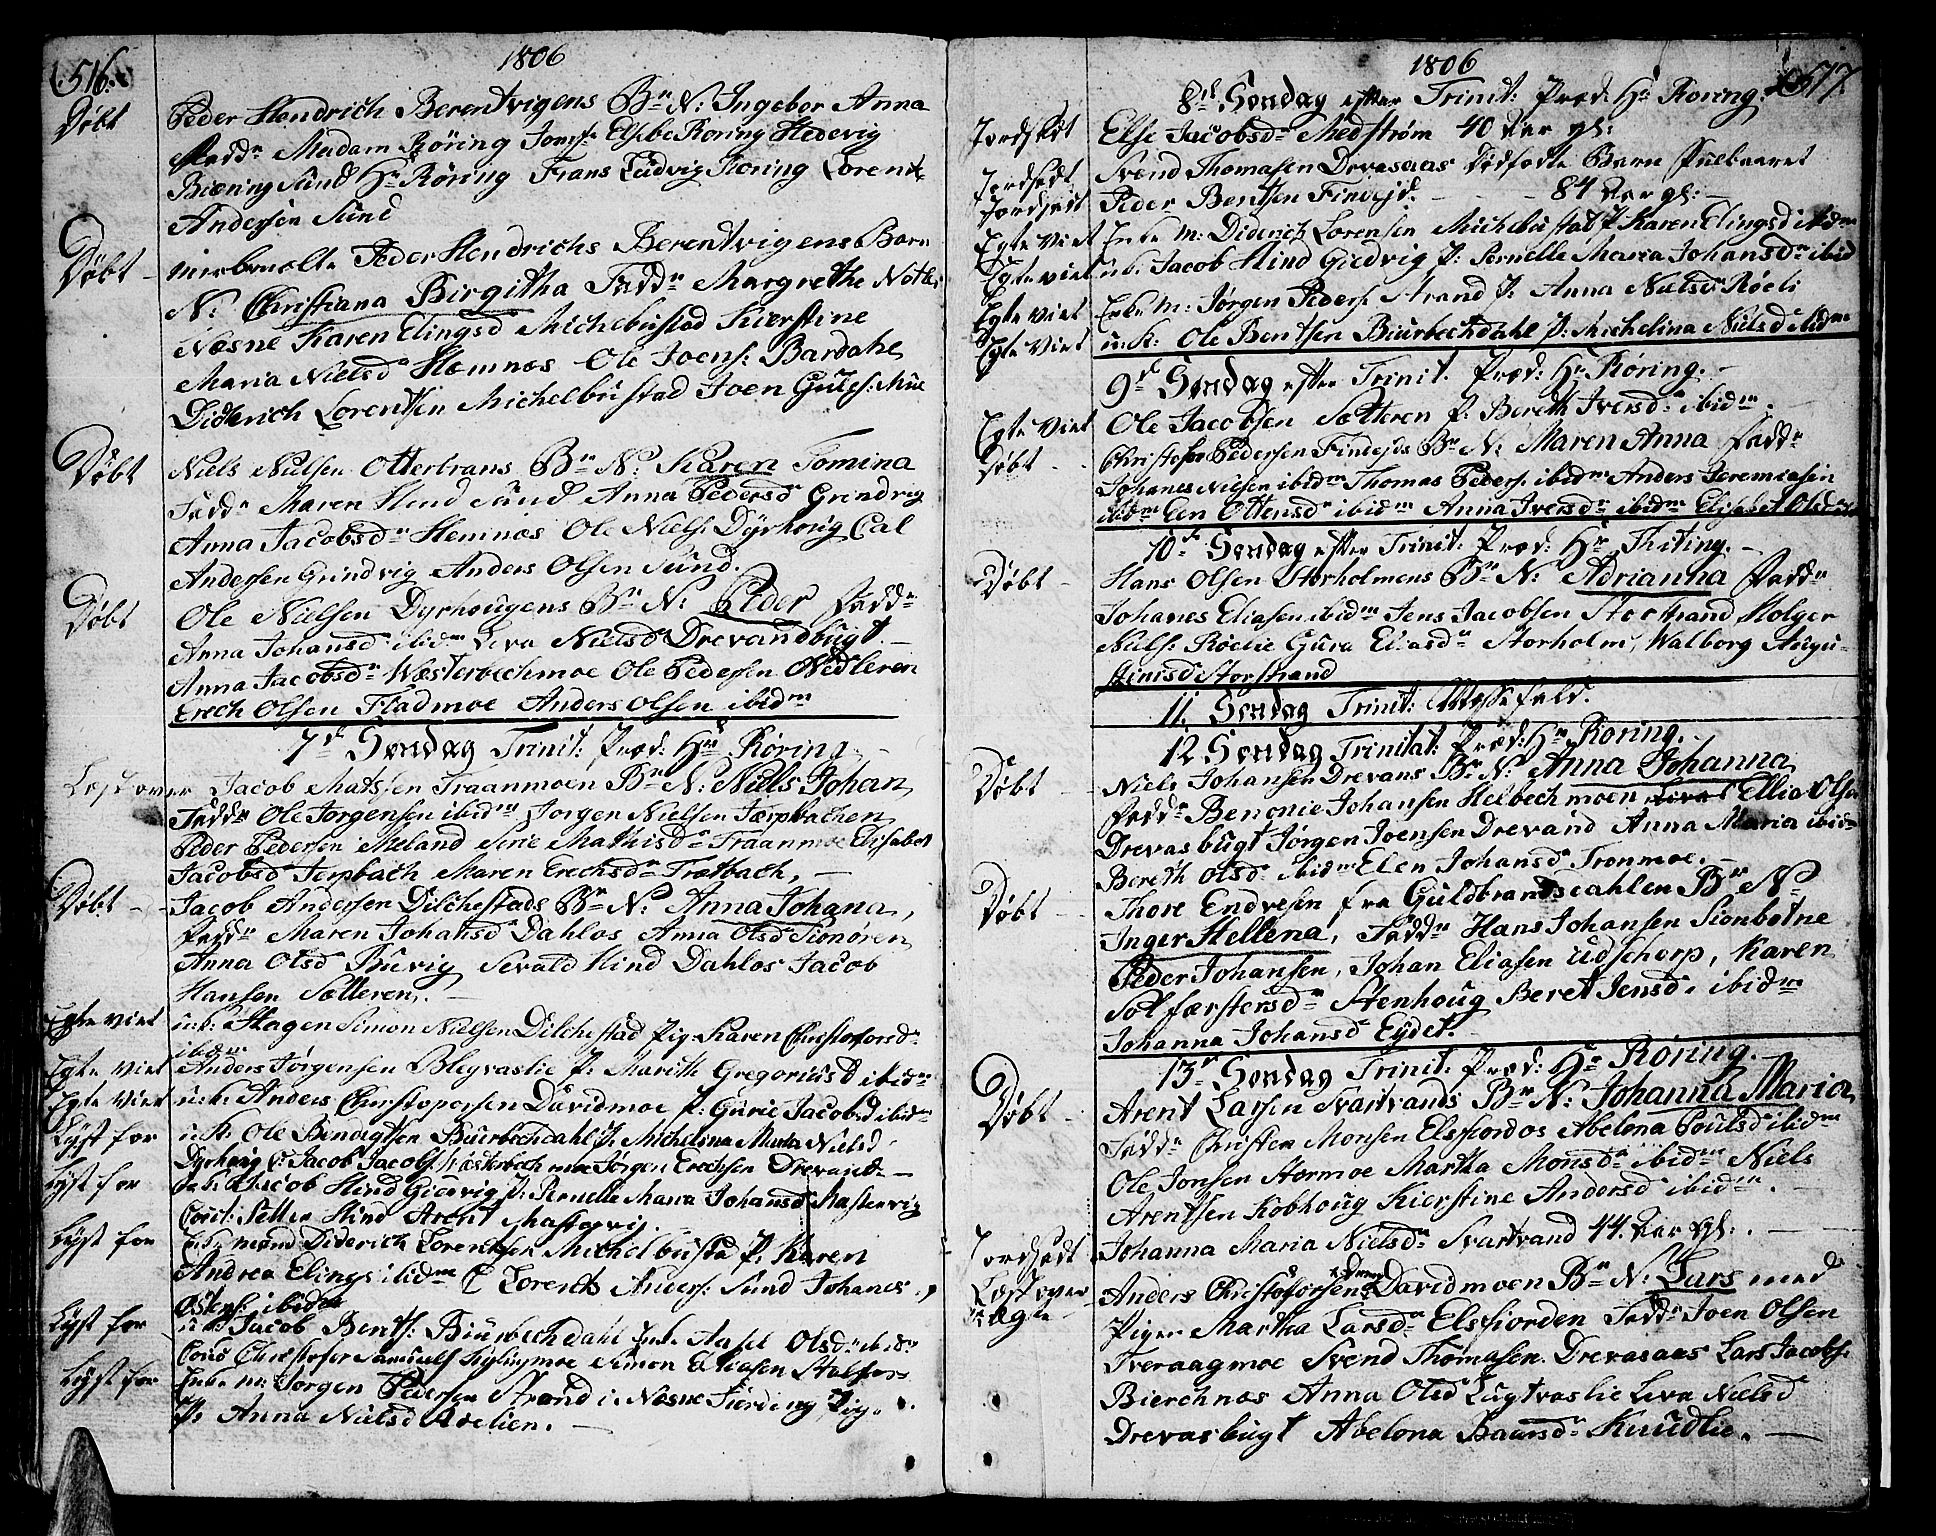 516.
1806
Døbt
Peder Hendrich Berentvigens Bn N: Ingebor Anna
Fadd: Madam Röring Jomf: Elsbe Roring Hedevig
Biæring Sund Hr Röring Frans Ludvig Roring Lorents
Andersen Sund
Døbt
Peder Hendrichs Berentvigens Barn
N: Christiana Birgitha Faddn Margrethe Nothe
Næsne Karen Elingsd Michelbustad Kierstine
Maria Nielsd Hemnæs Ole Joens: Bardahl
Diderich Lorentsen Michelbustad Joen Gules: Mul
Døbt
Niels Nielsen Ottertrans Bn N: Karen Tomina
Faddn Maren Hind Sund Anna Pedersd Grindvig
Anna Jacobsdn Hemnæs Ole Niels: Dyrhoug Cal
Andersen Grindvig Anders Olsen Sund.
Døbt
Ole Nielsen Dyrhougens Bn N: Peder Faddn
Anna Johansd ibidm Leva Nielsd Drevandbugt.
Anna Jacobsdn Wæsterbechmoe Ole Pedersen Nedleren
Erech Olsen Fladmoe Anders Olsen ibidm
7d Søndag Trinit: Præd: Hr Röring
Læst over Jacob Matssen Traanmoen Bn N: Niels Johan
Faddn Ole Jørgensen ibidm Jørgen Nielsen Tærpbachen
Peder Pedersen Meland Sirie Mathisdn Traanmoe Elisabet
Jacobsd Terpbach Maren Erechsdn Trætbach,
Døbt
Jacob Andersen Dilchestads Bn N: Anna Johana,
Faddn Maren Johansd Dahlos Anna Olsd Sionören
Anna Olsd Buvig Sevald Hind Dahlos Jacob
Hansen Sætteren.
Egte viet
unk: Hagen Simon Nielsen Dilchestad Pig: Karen Christofersdn
ibidm
Egte viet
Anders Jørgensen Blegvaslie P: Marith Gregoriusd ibidm
Egte viet
u:k: Anders Christopersen Davidmoe P: Gurie Jacobsd ibidm
Lyst for
u:k: Ole Bendigtsen Biurbechdahl P: Michelina Maria Nielsd
Dyrhoug C: Jacob Jacobs: Wæsterbechmoe Jørgen Erechsen Drevand
Lyst for
unk: Jacob Hind Giedvig P: Pernelle Maria Johansd Mastervig
Cout: Petter Hind Arent Mastervig.
Lyst for
Enkemand Diderich Lorentsen Michelbustad P: Karen
Andrea Elings: ibidm C Lorents Anders: Sund Johanes
Ostens: ibidm
Lyst for
unk Jacob Bents: Biurbechdahl Enke Aasel Olsdn ibidm
Couo Christofer Samuels Lylugmoe Simon Eliasen Stafsos
Lyst for
Enke m: Jørgen Pedersen Strand i Næsne Fierding Pig
P: Anna Nielsd Roelien.
1806
517
8de Søndag efter Trinit: Præd: Hr Röring:
Jordsat
Else Jacobsdn Medstrøm 40 Aar gl:
Jordsadt
Svend Thomasen Drevasaas Dødfødte Barn
Jordsadt
Peder Bentsen Findejd. 84 Aar gl:
Egte viet
Enke M: Diderich Lorensen Michelbustad P Karen Elingsd ibidm
Egte viet
u.k. Jacob Hind Giedvig P: Pernelle Maria Johansdn ibid
Egte viet
Enke M: Jørgen Peders: Strand P: Anna Nielsd Röeli
Egte viet
u:k: Ole Bentsen Biurbechdahl P: Michelina Nielsd ibidm
9d Søndag efter Trinit. Præd: Hr Röring.
Egte viet
Ole Jacobsen Sætteren P: Bereth Iversd: ibidm.
Døbt
Christofer Pedersen Findejds Bn N: Maren Anna Faddn
Johanes Nielsen ibidm Thomas Peders: ibidm Anders Jeremiasen
ibidm Elen Ottensdn ibidm Anna Iversdn ibidm Elisabet Olsd
10de Søndag efter Trinit: Præd: Hr Theting.
Døbt
Hans Olsen Storholmens Bn N: Adrianna Faddn
Johanes Eliasen ibidm Jens Jacobsen Storstrand Holger
Niels: Roelie Gura Eliasdn Storholm, Walborg Augu-
stinisd Storstrand
11. Søndag Trinit: Messefald.
12 Søndag Trinitat: Præd: Hr Roring.
Døbt
Niels Johansen Drevans Bn N: Anna Johanna
Faddn Benonie Johansen Helbechmoen Ellias Olsen
Drevasbugt Jørgen Joensen Drevand Anna Maria ibidm
Bereth Olsd: ibidm Elen Johansd Tronmoe.
Døbt
Thore Endresen fra Guldbrandsdahlen Bn N
Inger Hellena, Faddn Hans Johansen Sionbotne
Peder Johansen, Johan Eliasen Udscherp, Karen
Sølfærstersdn Stenhoug Beret Jensd: ibidm
Johanna Johansd Eydet.
13d Søndag Trinit: Præd: Hr Röring.
Døbt
Arent Larsen Svartvands Bn N: Johanna Maria
Faddn Christen Monsen Elsfiordos Abelona Poulsd ibidm
Ole Jonsen Stormoe Martha Monsdn ibidm Niels
Arentsen Kobhoug Kierstine Andersd ibidm.
Jordsadt
Johanna Maria Nielsdn Svartvand 44. Aar gl:
Læst over
uægte
Anders Christofersen Davidmoen Bn N: Lars med
Pigen Martha Larsdn Elsfiorden Faddn Joen Olsen
Tveraagmoe Svend Thomasen Drevasaas Lars Jacobs:
Bierchnæs Anna Olsd Lugtvaslie Leva Nielsd
Drevasbugt Abelona Baarsdn Knudlie.